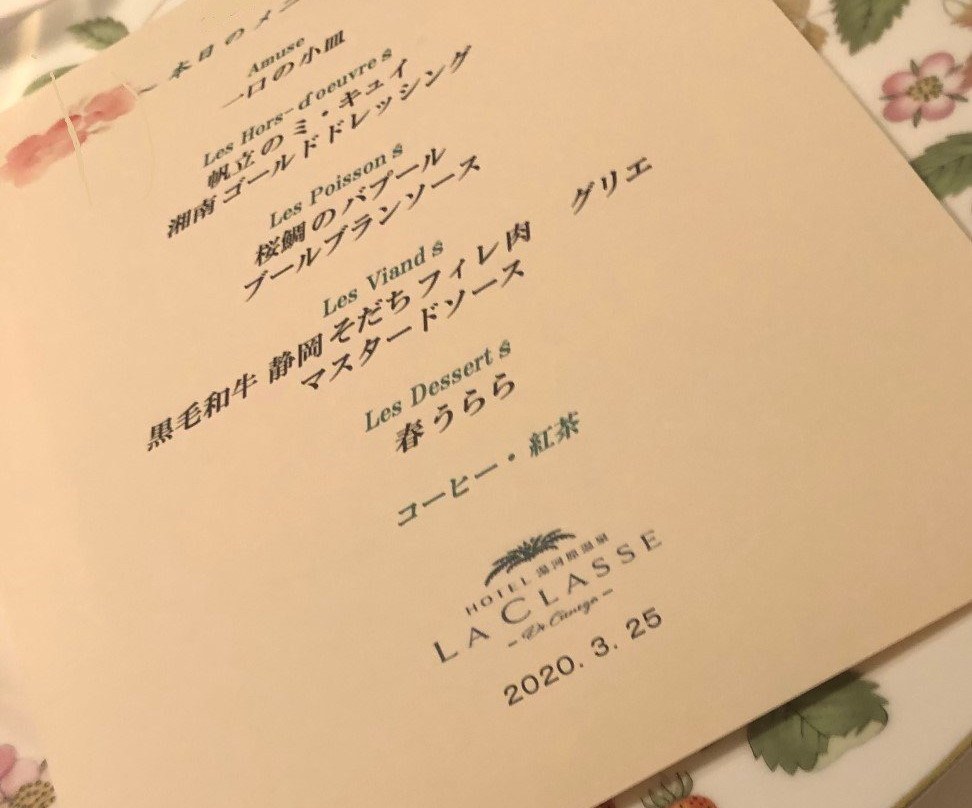 ～本日のメニ
Amuse
一口の小皿
Les Hors-d'oeuvres
帆立のミ・キュイ
湘南ゴールドドレッシング
Les Poissons
桜鯛のバプール
ブールブランソース
Les Viands
黒毛和牛 静岡そだち フィレ肉 グリエ
マスタードソース
Les Desserts
春うらら
コーヒー・紅茶
HOTEL 湯河原温泉
LA CLASSE
2020. 3. 25